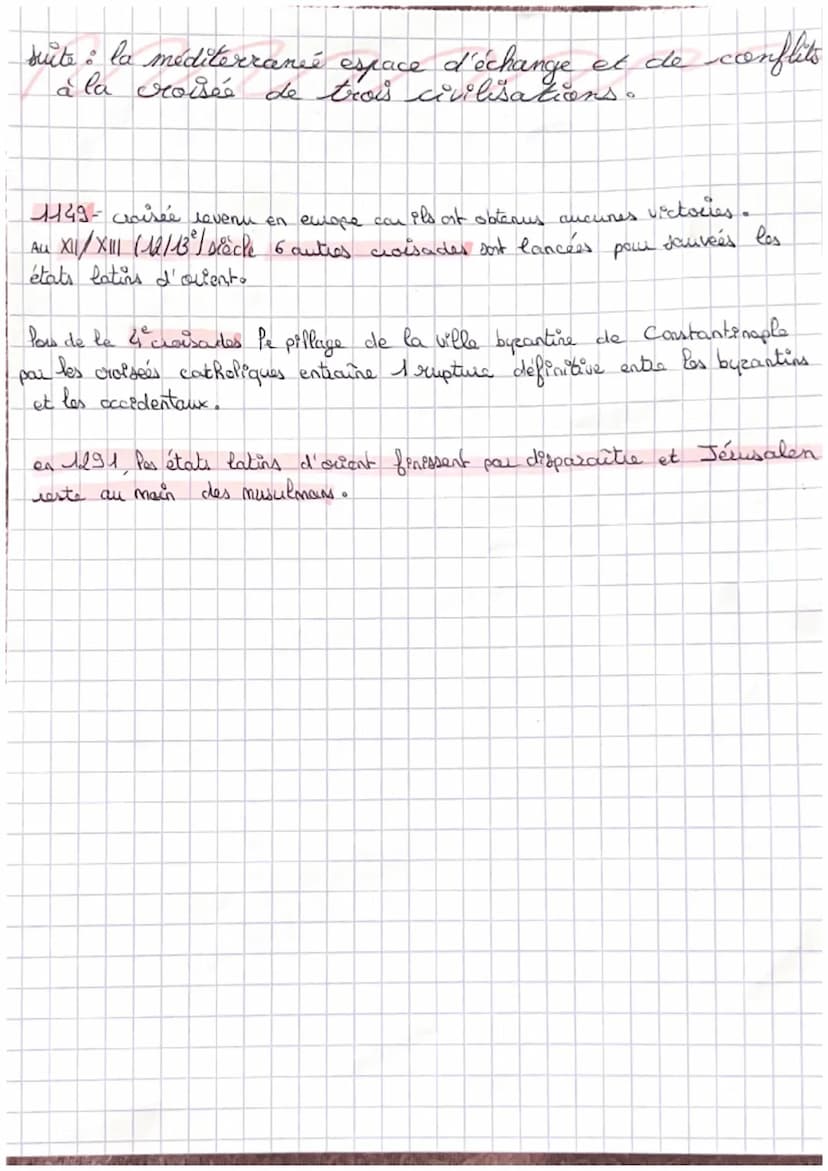 suite : la méditerraneé espace d'échange et de conflits
à la croiseé de trois civilisations.
1149- croisée revenu en europe car ils ont obtenus aucunes victoires.
Au XII/XIII (12/13e) siècle 6 autres croisades sont lancées pour sauveés les
états latins d'orient.
lors de le 4e croisades le pillage de la ville byzantine de Constantinople
par les croiseés catholiques entraine 1 rupture définitive entre les byzantins
et les occidentaux.
en 1291, les états latins d'orient finissent par disparaître et Jérusalen
reste au main des musulmans.